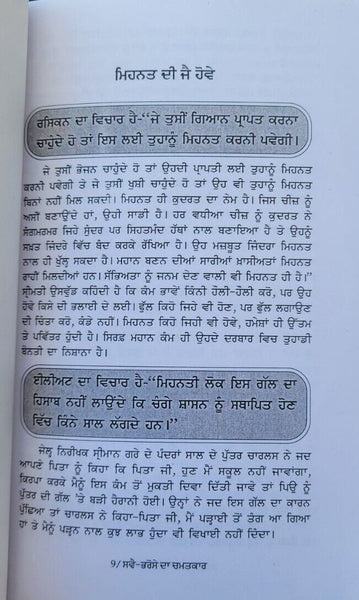 ਮਿਹਨਤ ਦੀ ਜੈ ਹੋਵੇ
ਰਸਿਕਨ ਦਾ ਵਿਚਾਰ ਹੈ-“ਜੇ ਤੁਸੀਂ ਗਿਆਨ ਪ੍ਰਾਪਤ ਕਰਨਾ
ਚਾਹੁੰਦੇ ਹੋ ਤਾਂ ਇਸ ਲਈ ਤੁਹਾਨੂੰ ਮਿਹਨਤ ਕਰਨੀ ਪਵੇਗੀ।
ਜੇ ਤੁਸੀਂ ਭੋਜਨ ਚਾਹੁੰਦੇ ਹੋ ਤਾਂ ਉਹਦੀ ਪ੍ਰਾਪਤੀ ਲਈ ਤੁਹਾਨੂੰ ਮਿਹਨਤ
ਕਰਨੀ ਪਵੇਗੀ ਤੇ ਜੇ ਤੁਸੀਂ ਖੁਸ਼ੀ ਚਾਹੁੰਦੇ ਹੋ ਤਾਂ ਉਹ ਵੀ ਤੁਹਾਨੂੰ ਮਿਹਨਤ
ਬਿਨਾਂ ਨਹੀਂ ਮਿਲ ਸਕਦੀ। ਮਿਹਨਤ ਹੀ ਕੁਦਰਤ ਦਾ ਨੇਮ ਹੈ। ਜਿਸ ਚੀਜ਼ ਨੂੰ
ਅਸੀਂ ਬਣਾਉਂਦੇ ਹਾਂ, ਉਹੀ ਸਾਡੀ ਹੈ। ਹਰ ਵਧੀਆ ਚੀਜ਼ ਨੂੰ ਕੁਦਰਤ ਨੇ
ਸੰਗਮਰਮਰ ਜਿਹੇ ਸੁੰਦਰ ਪਰ ਸਿਹਤਮੰਦ ਹੱਥਾਂ ਨਾਲ ਬਣਾਇਆ ਹੈ ਤੇ ਉਹਨੂੰ
ਸਖ਼ਤ ਜਿੰਦਰੇ ਵਿੱਚ ਬੰਦ ਕਰਕੇ ਰੱਖਿਆ ਹੈ। ਉਹ ਮਜ਼ਬੂਤ ਜਿੰਦਰਾ ਮਿਹਨਤ
ਨਾਲ ਹੀ ਖੁੱਲ੍ਹ ਸਕਦਾ ਹੈ। ਮਹਾਨ ਬਣਨ ਦੀਆਂ ਸਾਰੀਆਂ ਖ਼ਾਸੀਅਤਾਂ ਮਿਹਨਤ
ਰਾਹੀਂ ਮਿਲਦੀਆਂ ਹਨ। ਸੱਭਿਅਤਾ ਨੂੰ ਜਨਮ ਦੇਣ ਵਾਲੀ ਵੀ ਮਿਹਨਤ ਹੀ ਹੈ।”
ਸ੍ਰੀਮਤੀ ਓਸਵੁੱਡ ਕਹਿੰਦੀ ਹੈ ਕਿ ਕੰਮ ਭਾਵੇਂ ਕਿੰਨੀ ਹੌਲੀ-ਹੌਲੀ ਕਰੋ, ਪਰ ਉਹ
ਹੋਵੇ ਕਿਸੇ ਦੀ ਭਲਾਈ ਦੇ ਲਈ। ਫੁੱਲ ਕਿਹੋ ਜਿਹੇ ਵੀ ਹੋਣ, ਪਰ ਫੁੱਲ ਲਗਾਉਣ
ਦੀ ਚਿੰਤਾ ਕਰੋ, ਕੰਡੇ ਨਹੀਂ। ਮਿਹਨਤ ਕਿਹੋ ਜਿਹੀ ਵੀ ਹੋਵੇ, ਹਮੇਸ਼ਾਂ ਹੀ ਉੱਤਮ
ਤੇ ਪਵਿੱਤਰ ਹੁੰਦੀ ਹੈ। ਸਿਰਫ਼ ਮਹਾਨ ਕੰਮ ਹੀ ਉਹਦੇ ਦਰਬਾਰ ਵਿਚ ਤੁਹਾਡੀ
ਬੇਨਤੀ ਦਾ ਨਿਸ਼ਾਨਾ ਹੈ।
ਈਲੀਅਟ ਦਾ ਵਿਚਾਰ ਹੈ-“ਮਿਹਨਤੀ ਲੋਕ ਇਸ ਗੱਲ ਦਾ
ਹਿਸਾਬ ਨਹੀਂ ਲਾਉਂਦੇ ਕਿ ਚੰਗੇ ਸ਼ਾਸਨ ਨੂੰ ਸਥਾਪਿਤ ਹੋਣ
ਵਿੱਚ ਕਿੰਨੇ ਸਾਲ ਲੱਗਦੇ ਹਨ।”
ਜੇਲ੍ਹ ਨਿਰੀਖਕ ਸ੍ਰੀਮਾਨ ਗਰੇ ਦੇ ਪੰਦਰਾਂ ਸਾਲ ਦੇ ਪੁੱਤਰ ਚਾਰਲਸ ਨੇ ਜਦ
ਆਪਣੇ ਪਿਤਾ ਨੂੰ ਕਿਹਾ ਕਿ ਪਿਤਾ ਜੀ, ਹੁਣ ਮੈਂ ਸਕੂਲ ਨਹੀਂ ਜਾਵਾਂਗਾ,
ਕਿਰਪਾ ਕਰਕੇ ਮੈਨੂੰ ਇਸ ਕੰਮ ਤੋਂ ਮੁਕਤੀ ਦਿਵਾ ਦਿੱਤੀ ਜਾਵੇ ਤਾਂ ਪਿਓ ਨੂੰ
ਪੁੱਤਰ ਦੀ ਗੱਲ 'ਤੇ ਬੜੀ ਹੈਰਾਨੀ ਹੋਈ। ਉਨ੍ਹਾਂ ਨੇ ਜਦ ਇਸ ਗੱਲ ਦਾ ਕਾਰਨ
ਪੁੱਛਿਆ ਤਾਂ ਚਾਰਲਸ ਨੇ ਕਿਹਾ-ਪਿਤਾ ਜੀ, ਮੈਂ ਪੜ੍ਹਾਈ ਤੋਂ ਤੰਗ ਆ ਗਿਆ
ਹਾਂ ਤੇ ਮੈਨੂੰ ਪੜ੍ਹਨ ਨਾਲ ਕੁਝ ਲਾਭ ਹੁੰਦਾ ਵੀ ਵਿਖਾਈ ਨਹੀਂ ਦਿੰਦਾ।
9/ਸਵੈ-ਭਰੋਸੇ ਦਾ ਚਮਤਕਾਰ